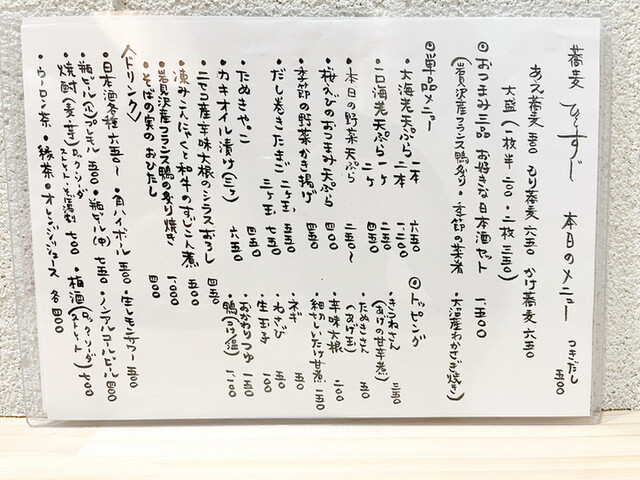 蕎麦 ひとすじ 本日のメニュー つきだし 五〇〇
あえ蕎麦 五〇〇 もり蕎麦 六五〇 かけ蕎麦 六五〇
大盛(一枚半 二〇〇・二枚 三五〇)
◎おつまみ三品 お好きな日本酒セット 一.五〇〇
(岩見沢産フランス鴨炙り・季節の菜肴・大沼産わかさぎ焼き)
◎単品メニュー
・大海老天ぷら 一本 六五〇
二本 一.二〇〇
・小海老天ぷら 一ヶ
二ヶ 四五〇
・本日の野菜天ぷら 三五〇~
・桜えびのおつまみ天ぷら 四〇〇
・季節の野菜かき揚げ 五〇〇
・だし巻きたまご 二ヶ玉 五五〇
三ヶ玉
・たぬきやっこ 四五〇
・カキオイル漬け(三ヶ) 六五〇
・ニセコ産辛味大根のシラスおろし 四五〇
・凍みこんにゃくと和牛のすじこん煮 五五〇
・岩見沢産フランス鴨の炙り焼き 一.〇〇〇
・そばの実のおひたし 四〇〇
◎トッピング
・きつねさん(あげの甘辛煮) 三五〇
・たぬきさん(あげ玉) 五〇
・辛味大根 二〇〇
・細切しいたけ甘煮 一五〇
・ネギ 五〇
・わさび 五〇
・生玉子 一〇〇
・おかわりつゆ 一五〇
・鴨(冷/温) 一.一〇〇
〈ドリンク〉
・日本酒各種 六五〇~ ・角ハイボール 五〇〇 ・生レモンサワー 五〇〇
・瓶ビール(小)プレモル 五〇〇 ・瓶ビール(中) 七五〇 ・ノンアルコールビール 四〇〇
・焼酎(麦・芋)ロック・ソーダ ストレート・そば湯割 七〇〇 ・梅酒(ロック・ソーダ ストレート) 七〇〇
・ウーロン茶・緑茶・オレンジジュース 各四〇〇